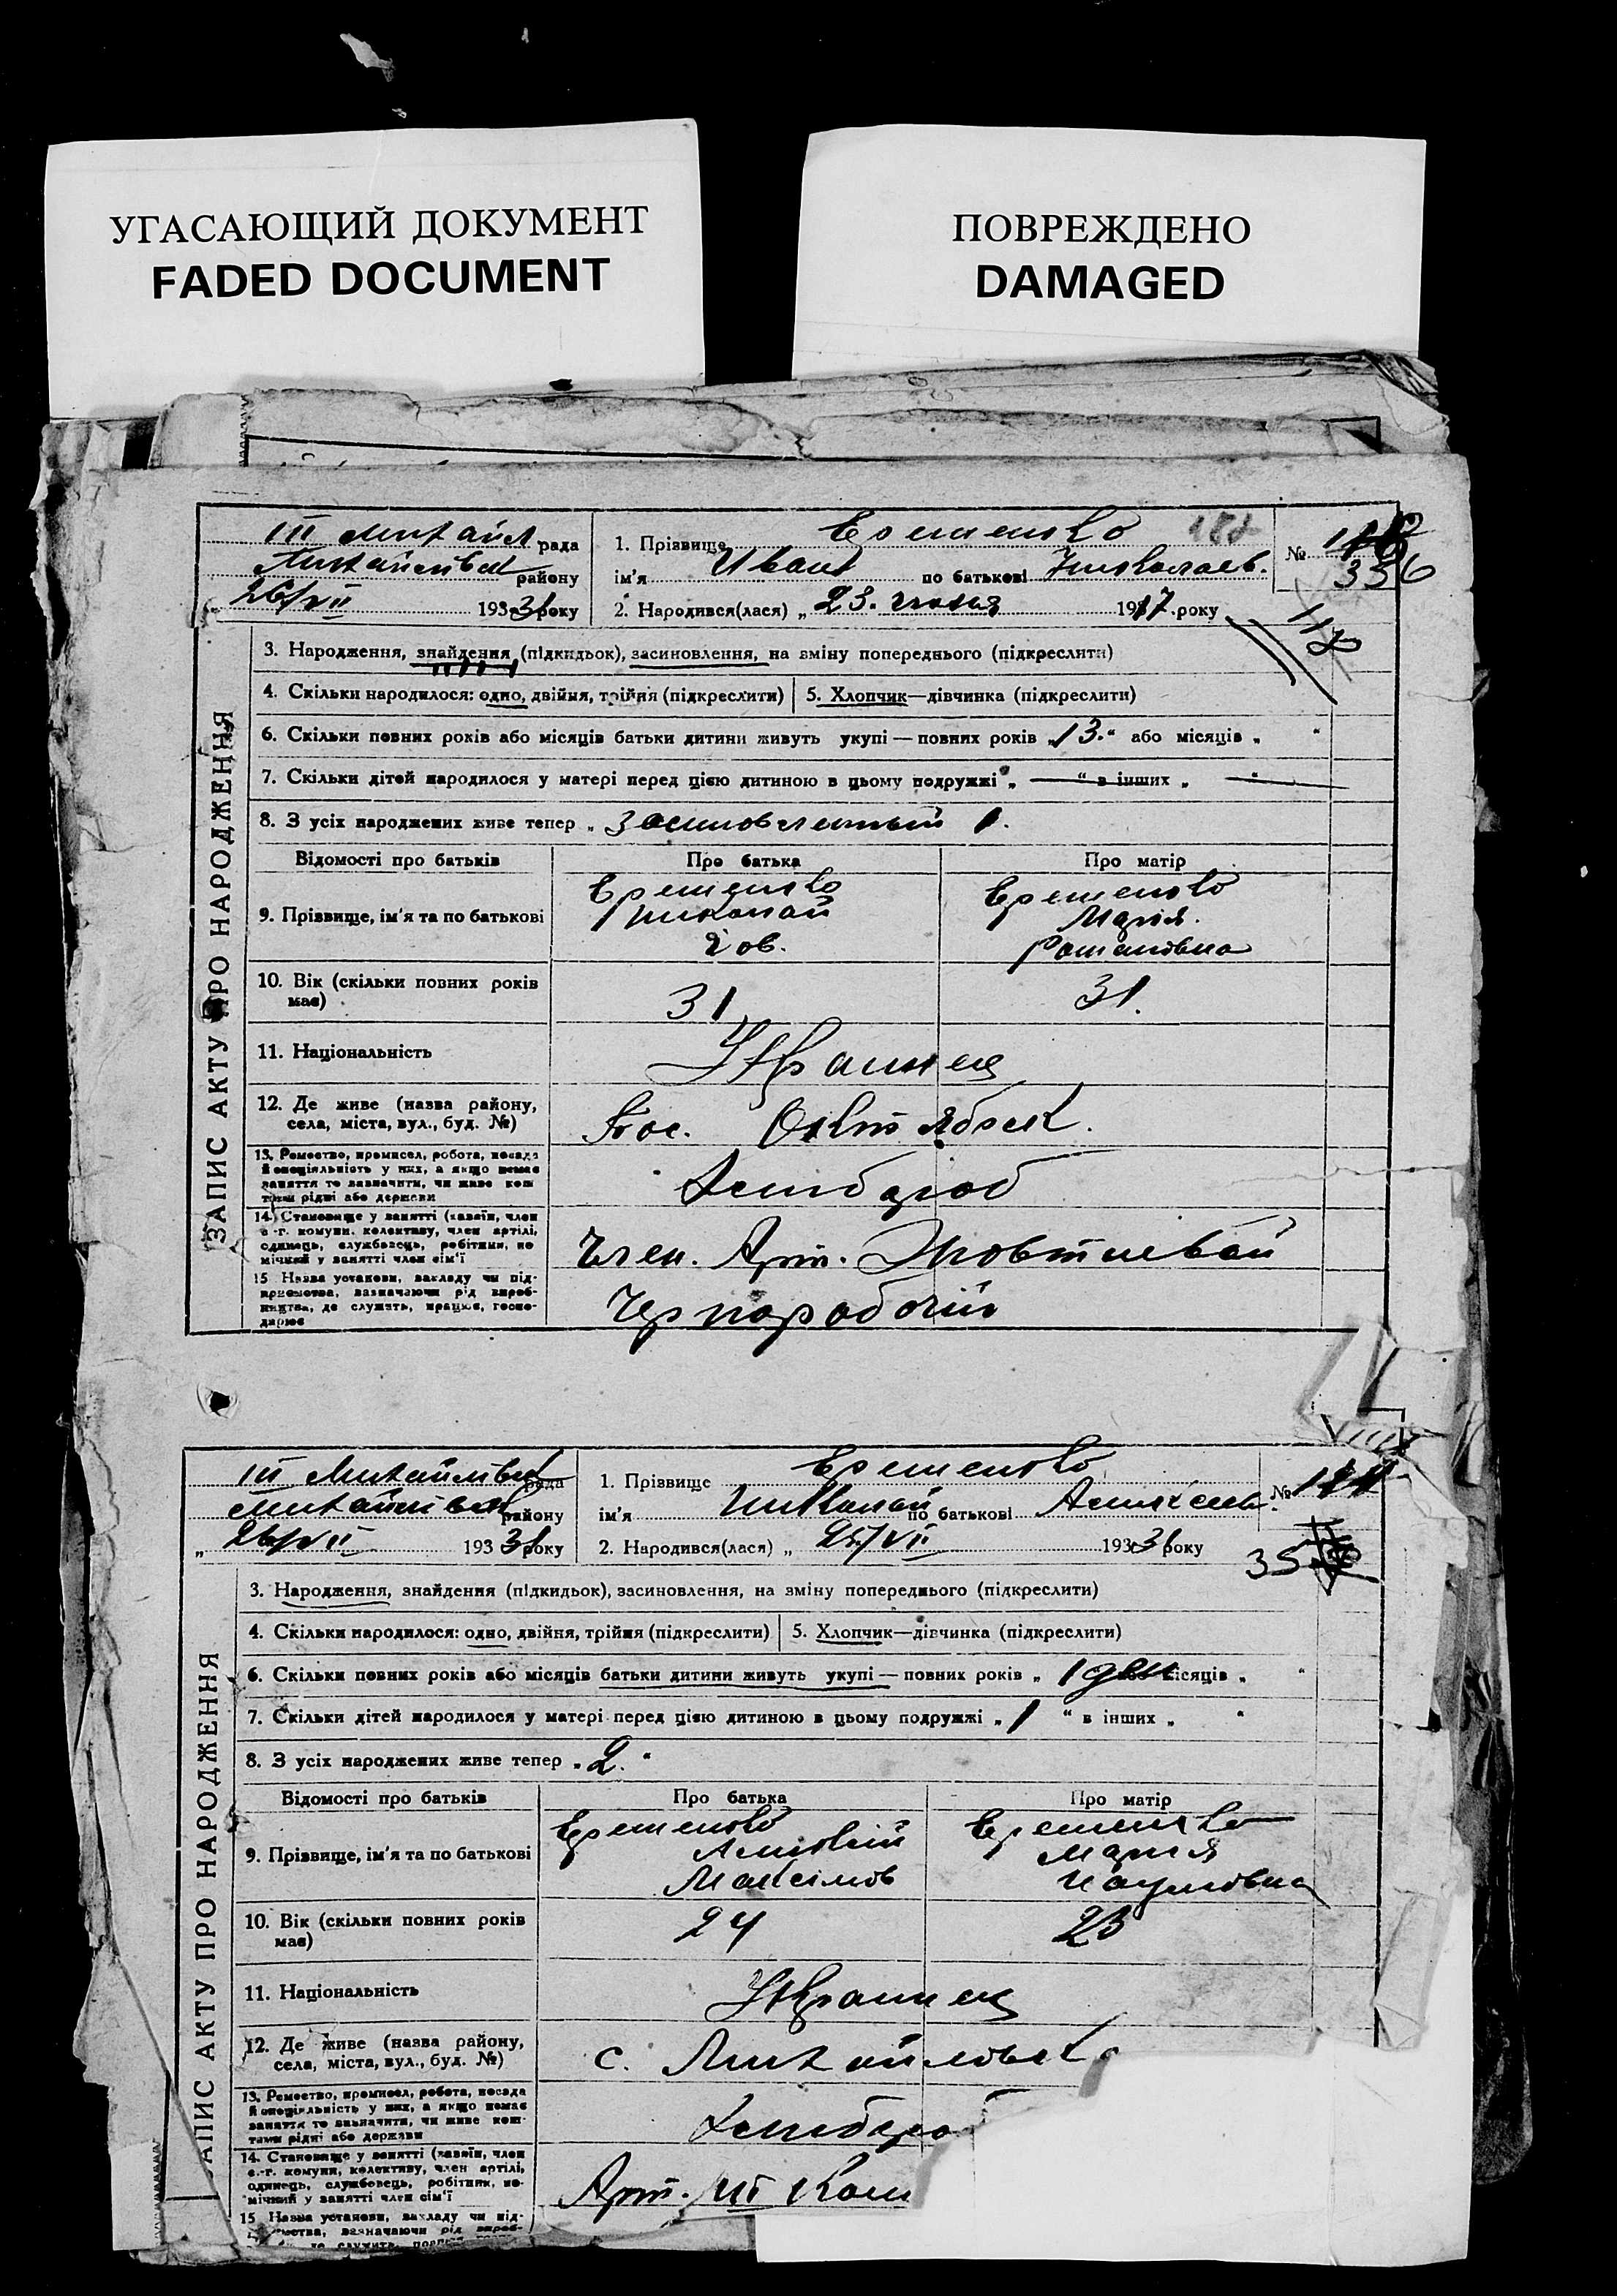 УГАСАЮЩИЙ ДОКУМЕНТ
FADED DOCUMENT
ПОВРЕЖДЕНО
DAMAGED
ЗАПИС АКТУ ПРО НАРОДЖЕННЯ
III Михайл рада
району
26/VII 193 31 року
1. Прізвище Еременко
ім'я Иван по батькові Николаев.
2. Народився(лася) „ 23. 1917 року
№
356
3. Народження, знайдення (підкидьок), засиновлення, на зміну попереднього (підкреслити)
4. Скільки народилося: одно, двійня, трійня (підкреслити)
5. Хлопчик—дівчинка (підкреслити)
6. Скільки повних років або місяців батьки дитини живуть укупі — повних років „ 13. “ або місяців „ “
7. Скільки дітей народилося у матері перед цією дитиною в цьому подружжі „ — “ в інших „ — “
8. З усіх народжених живе тепер „ 1.
Відомості про батьків
Про батька
Про матір
9. Прізвище, ім'я та по батькові
Еременко
Николай
Еременко
Мария.
Романовна
10. Вік (скільки повних років має)
31
31.
11. Національність
Украинец
12. Де живе (назва району,
села, міста, вул., буд. №)
Пос. Октябрск.
13. Ремество, промисел, робота, посада
й спеціяльність у них, а якщо немає
заняття то зазначити, чи живе кош
тами рідні або держави
Хлибароб
14. Становище у занятті (хазяїн, член
с.-г. комуни, колективу, член артілі,
одинець, службовець, робітник, по
мічний у занятті член сім'ї
Член. Арт.
15 Назва установи, закладу чи під-
приємства, зазначаючи рід вироб-
ництва, де служить, працює, госпо-
дарює
Чернорабочий
ЗАПИС АКТУ ПРО НАРОДЖЕННЯ
III Михайлівск рада
Михайлівск району
„ 26/VII 193 31 року
1. Прізвище Еременко
ім'я Николай по батькові Алексеев.
2. Народився(лася) „ 25/VII 193 31 року
№
3. Народження, знайдення (підкидьок), засиновлення, на зміну попереднього (підкреслити)
4. Скільки народилося: одно, двійня, трійня (підкреслити)
5. Хлопчик—дівчинка (підкреслити)
6. Скільки повних років або місяців батьки дитини живуть укупі — повних років „ 1 місяців „ “
7. Скільки дітей народилося у матері перед цією дитиною в цьому подружжі „ 1 “ в інших „ “
8. З усіх народжених живе тепер „ 2. “
Відомості про батьків
Про батька
Про матір
9. Прізвище, ім'я та по батькові
Еременко
Максімов
Еременко
Мария
Наумовна
10. Вік (скільки повних років має)
24
23
11. Національність
Украинец
12. Де живе (назва району,
села, міста, вул., буд. №)
с. Михайловка
13. Ремество, промисел, робота, посада
й спеціяльність у них, а якщо немає
заняття то зазначити, чи живе кош-
тами рідні або держави
Хлибаро
14. Становище у занятті (хазяїн, член
с.-г. комуни, колективу, член артілі,
одинець, службовець, робітник, по-
мічний у занятті член сім'ї
Арт.
15 Назва установи, закладу чи під-